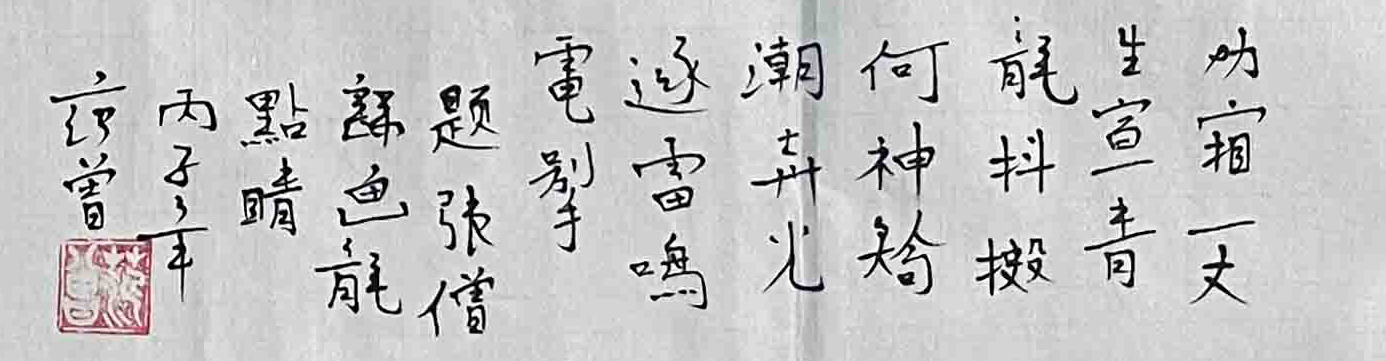 一丈
生宣青
龍抖擻
何神矯
潮奔光
逐雷鳴
電掣
題張僧
繇畫龍
點睛
丙子年
范曾